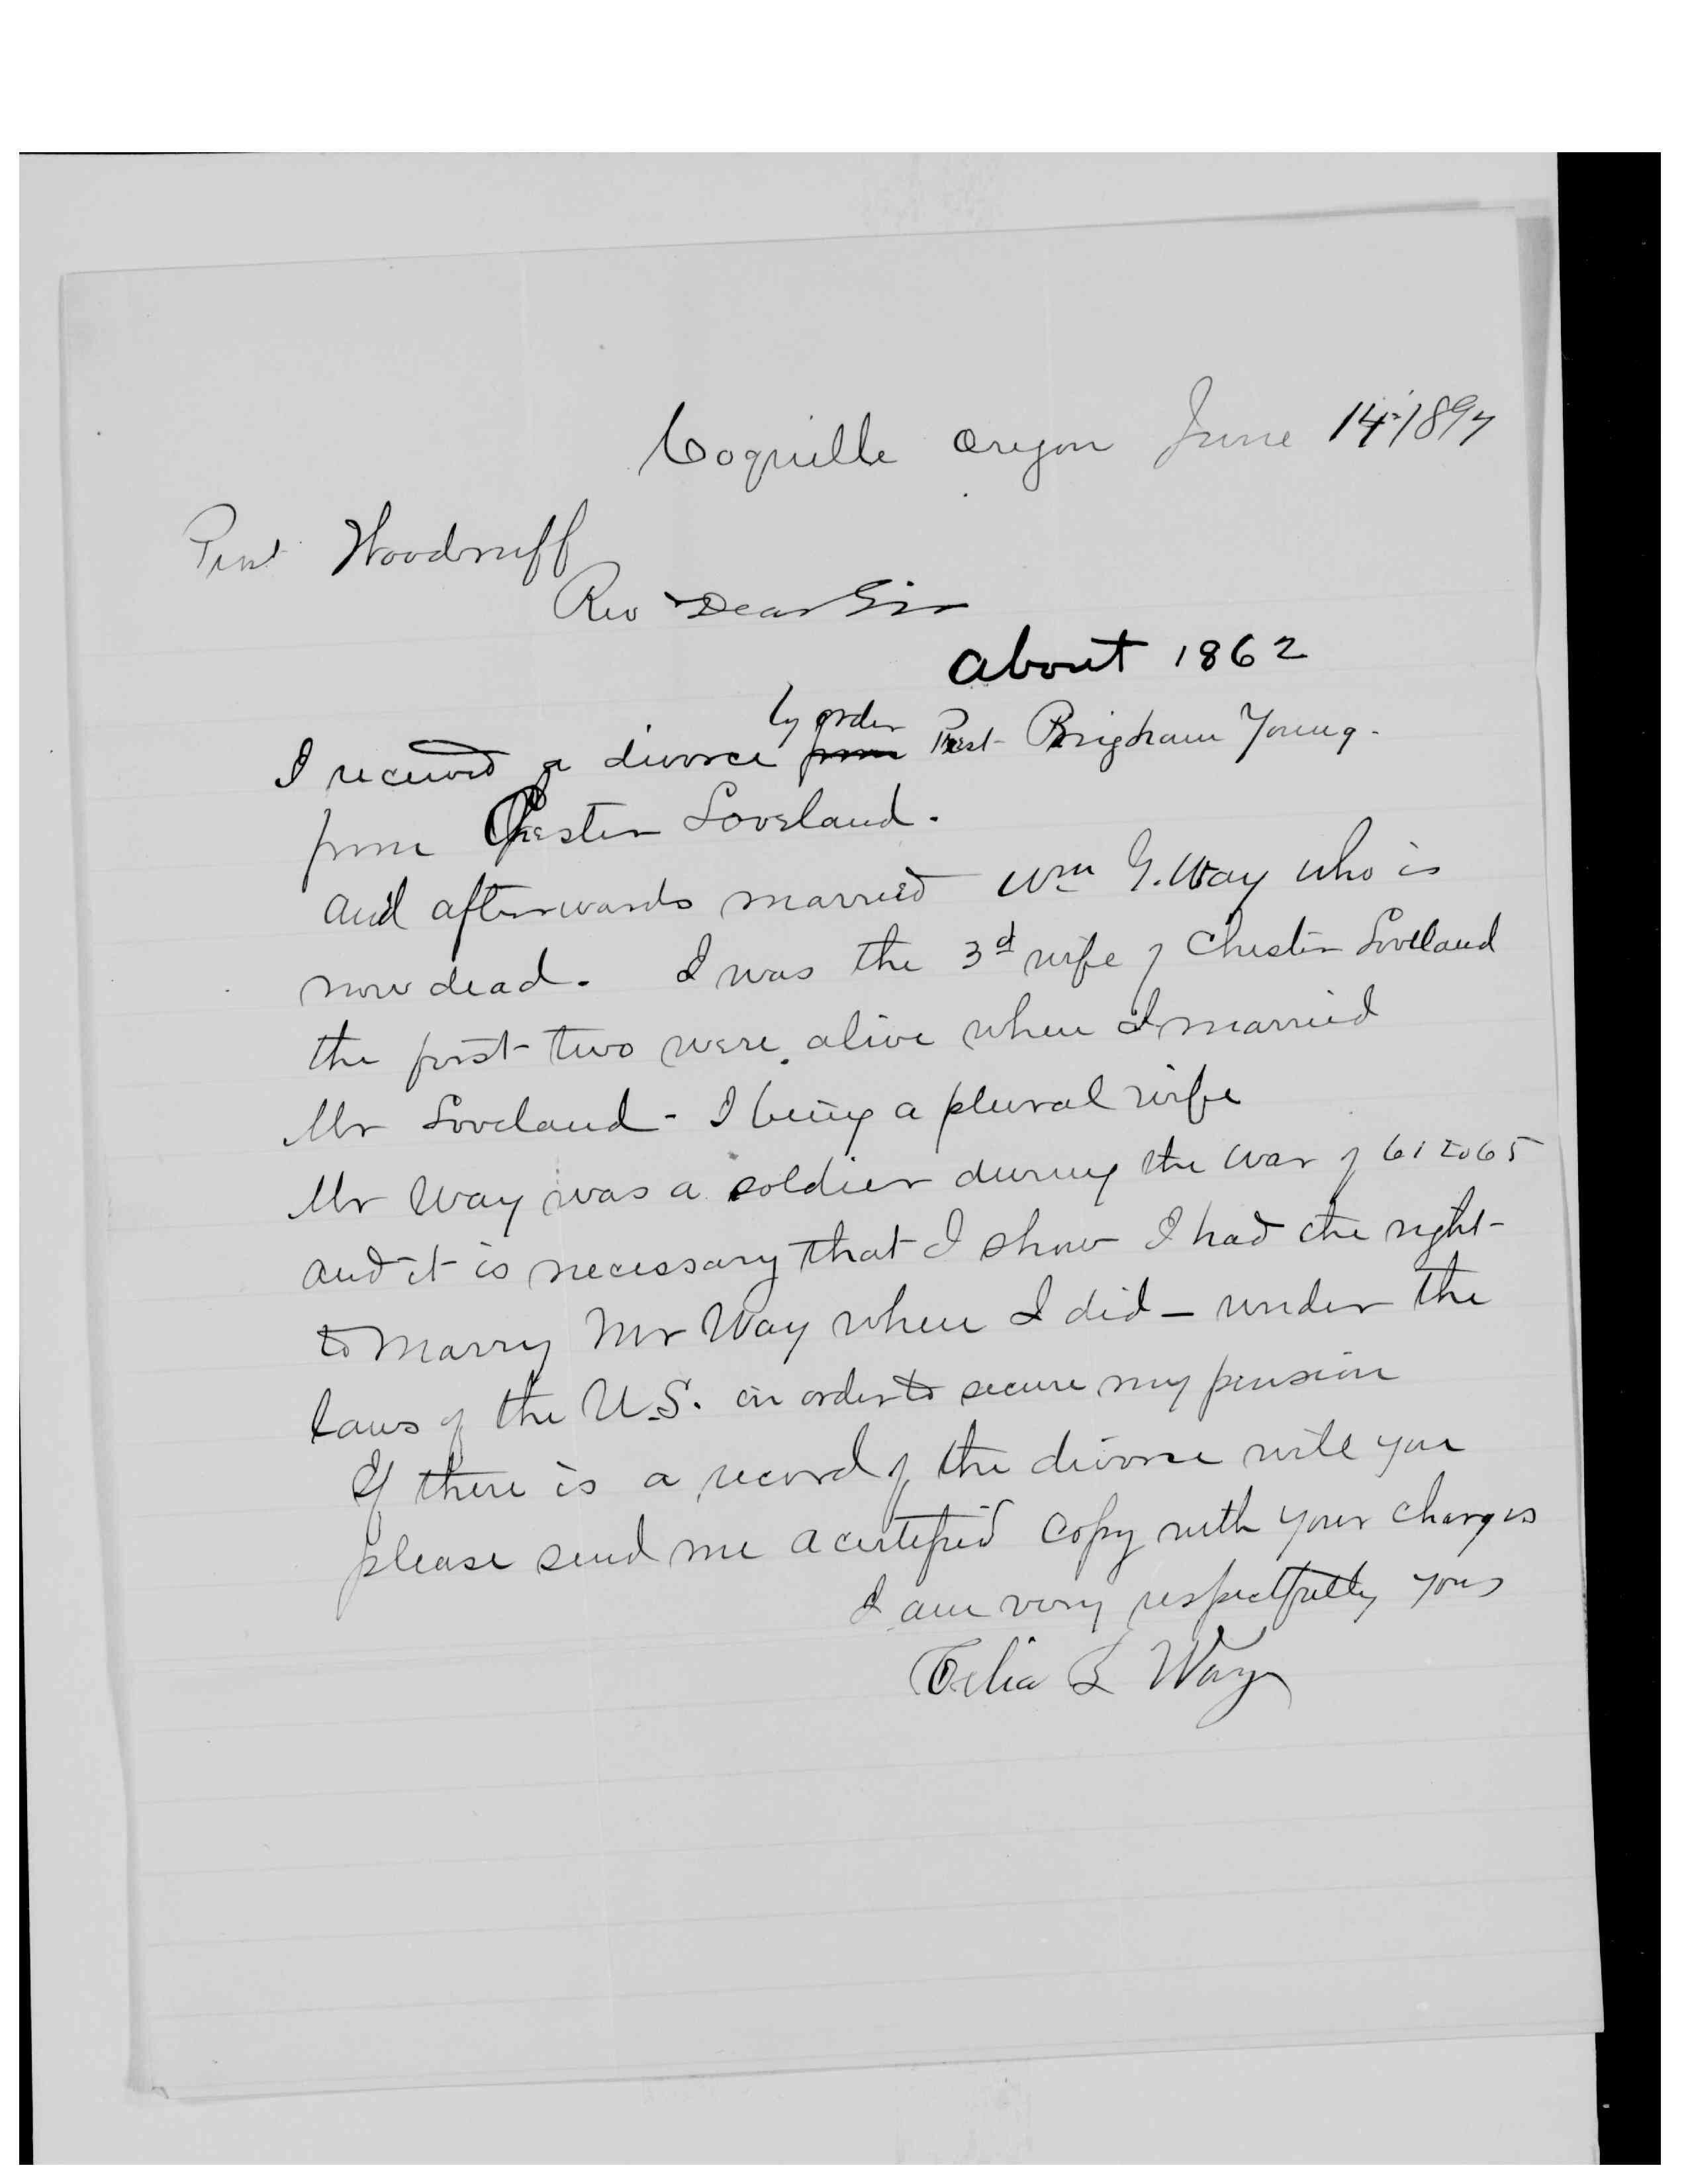 Coquille Oregon June 14-1897
Prest Woodruff
Rev Dear Sir
about 1862
by order
I received a divorce from Prest Brigham Young.
from Chester Loveland.
and afterwards married Wm G. Way who is
now dead. I was the 3d wife of Chester Loveland
the first two were alive when I married
Mr Loveland - I being a plural wife
Mr Way was a soldier during the war of 61 to 65
and it is necessary that I show I had the right
to marry Mr Way when I did - under the
laws of the U.S. in order to secure my pension
If there is a record of the divorce will you
please send me a certified copy with your charges
I am very respectfully yours
Celia L Way